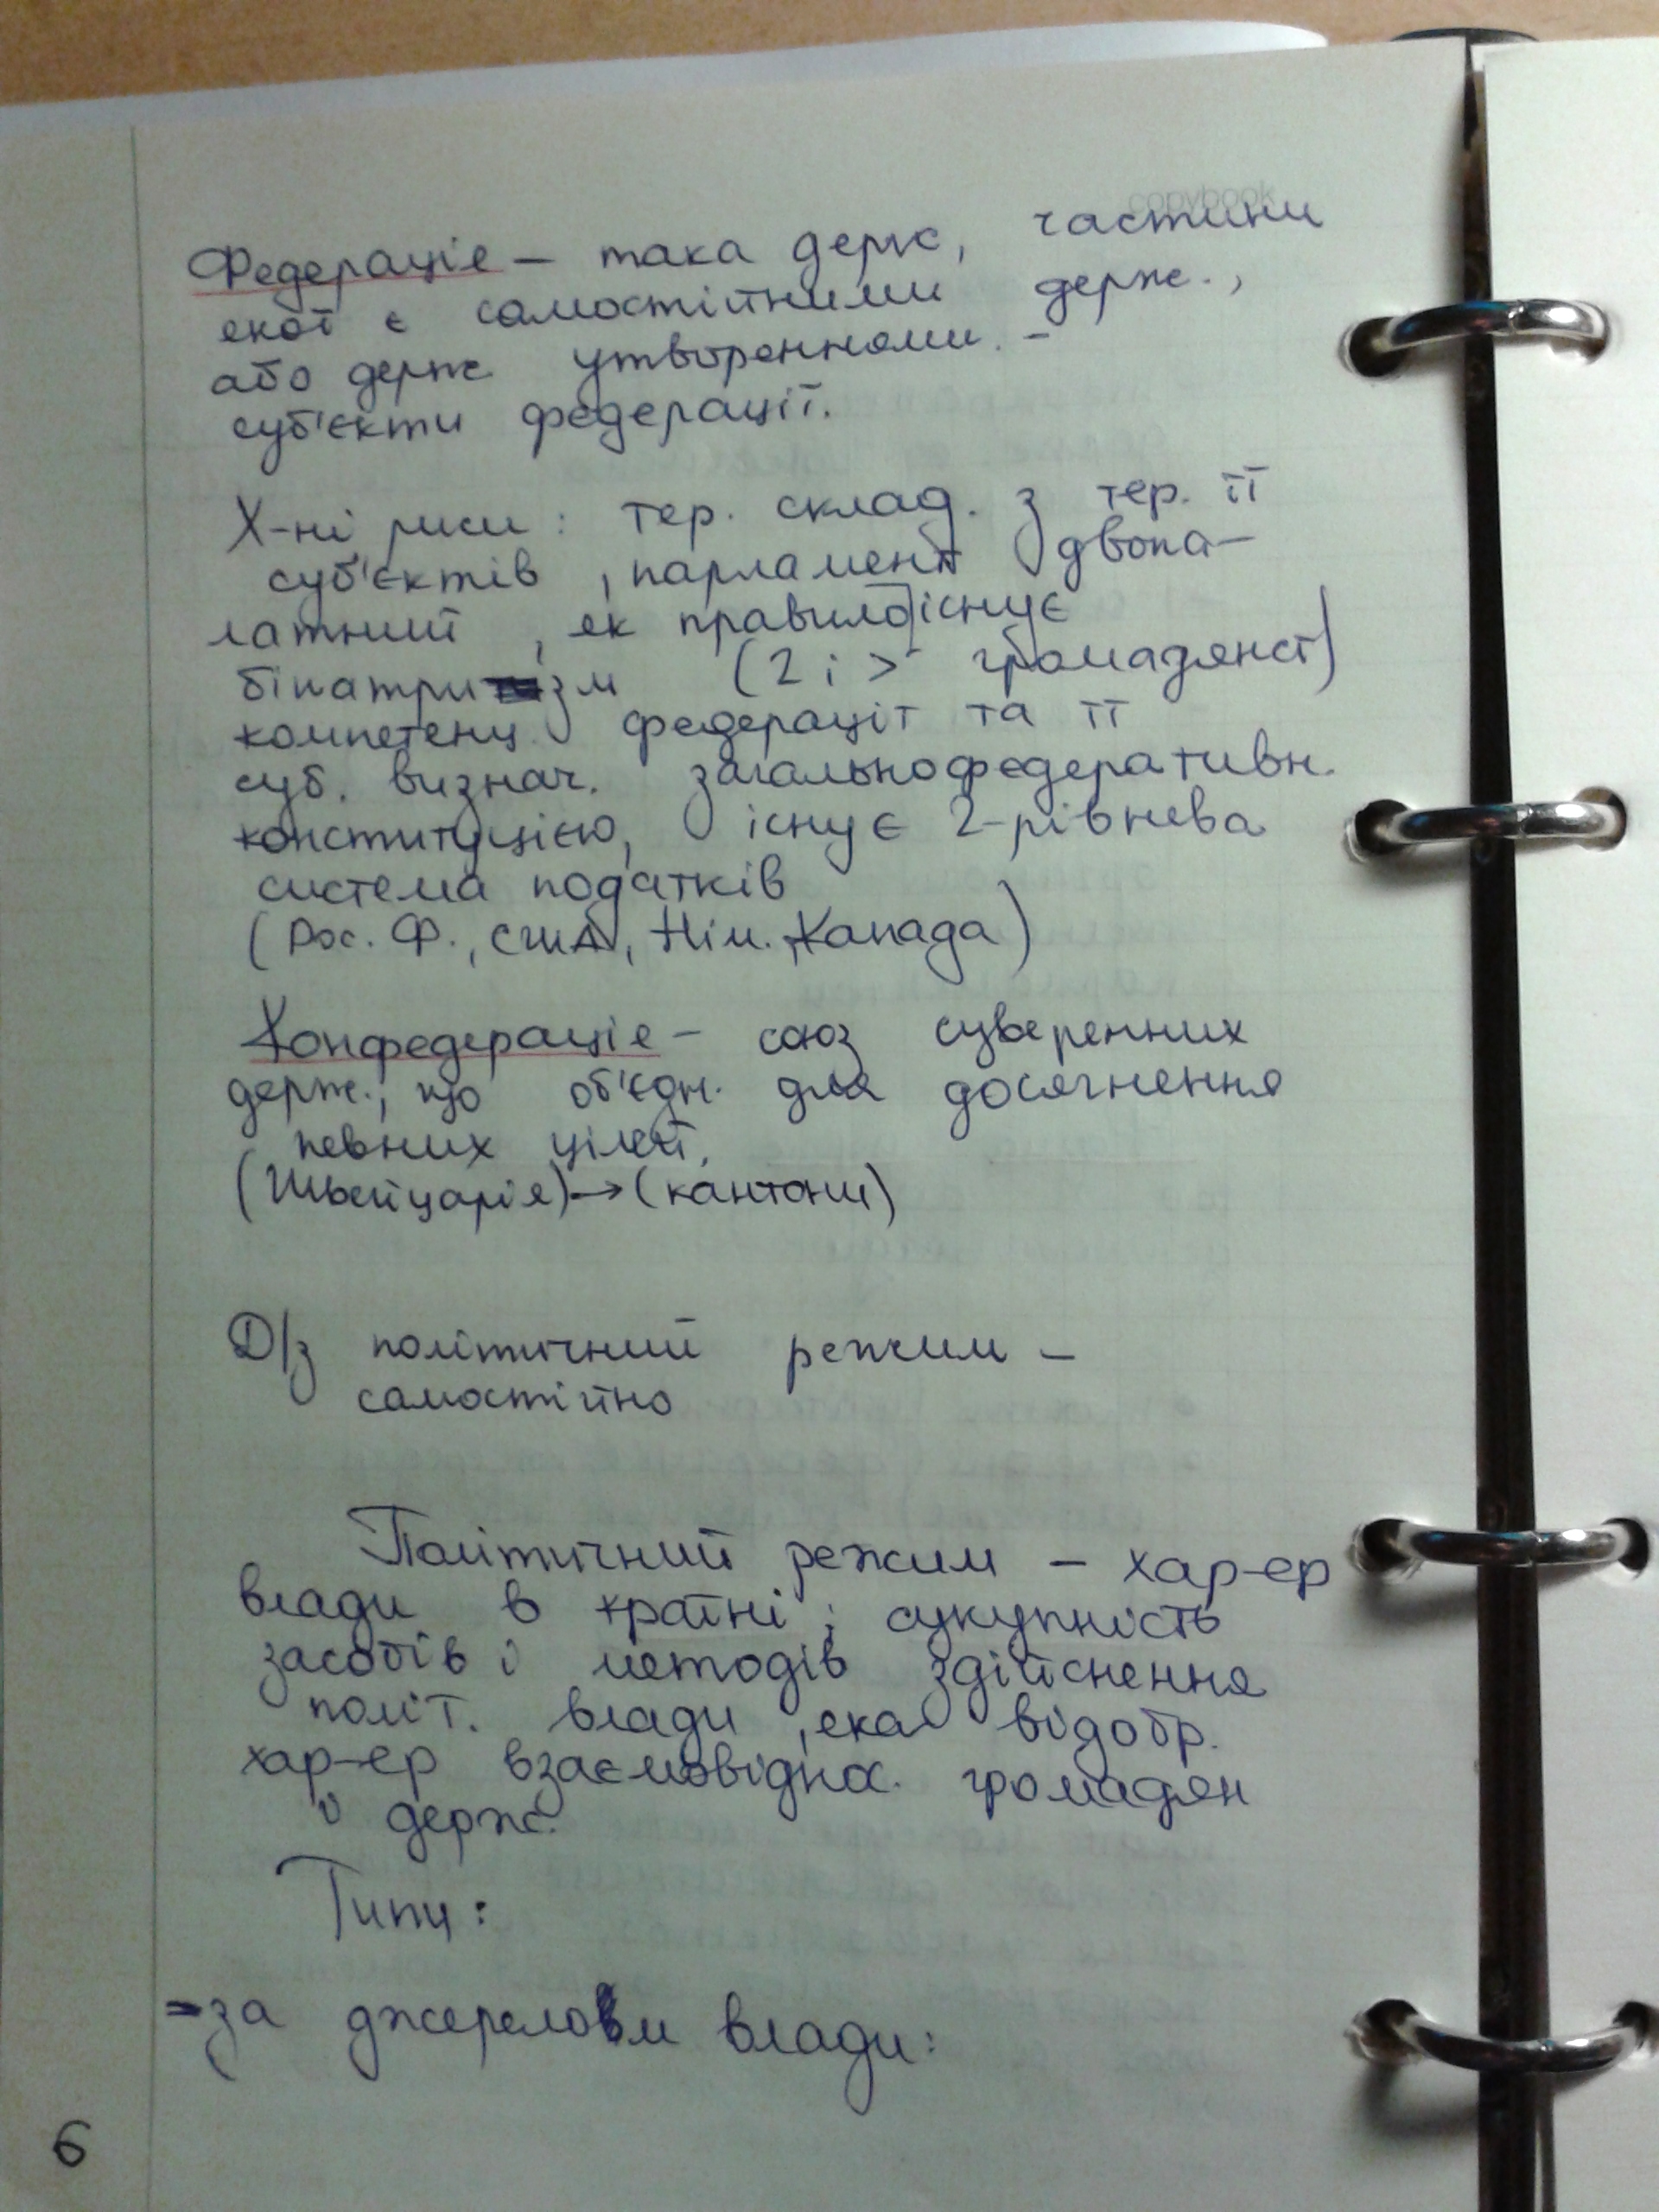 copybook
Федерація – така держ, частини
якої є самостійними держ.,
або держ. утвореннями. –
суб'єкти федерації.
Х-ні риси: тер. склад. з тер. її
суб'єктів, парламент двопа-
латний, як правило існує
біпатризм (2 і > громадянст)
компетенц. федерації та її
суб. визнач. загальнофедеративн.
конституцією, існує 2-рівнева
система податків
(Рос. Ф., США, Нім., Канада)
Конфедерація – союз суверенних
держ., що об'єдн. для досягнення
певних цілей.
(Швейцарія) → (кантони)
Д/з політичний режим –
самостійно
Політичний режим – хар-ер
влади в країні; сукупність
засобів і методів здійснення
політ. влади, яка відобр.
хар-ер взаємовіднос. громадян
і держ.
Типи:
– за джерелом влади:
6